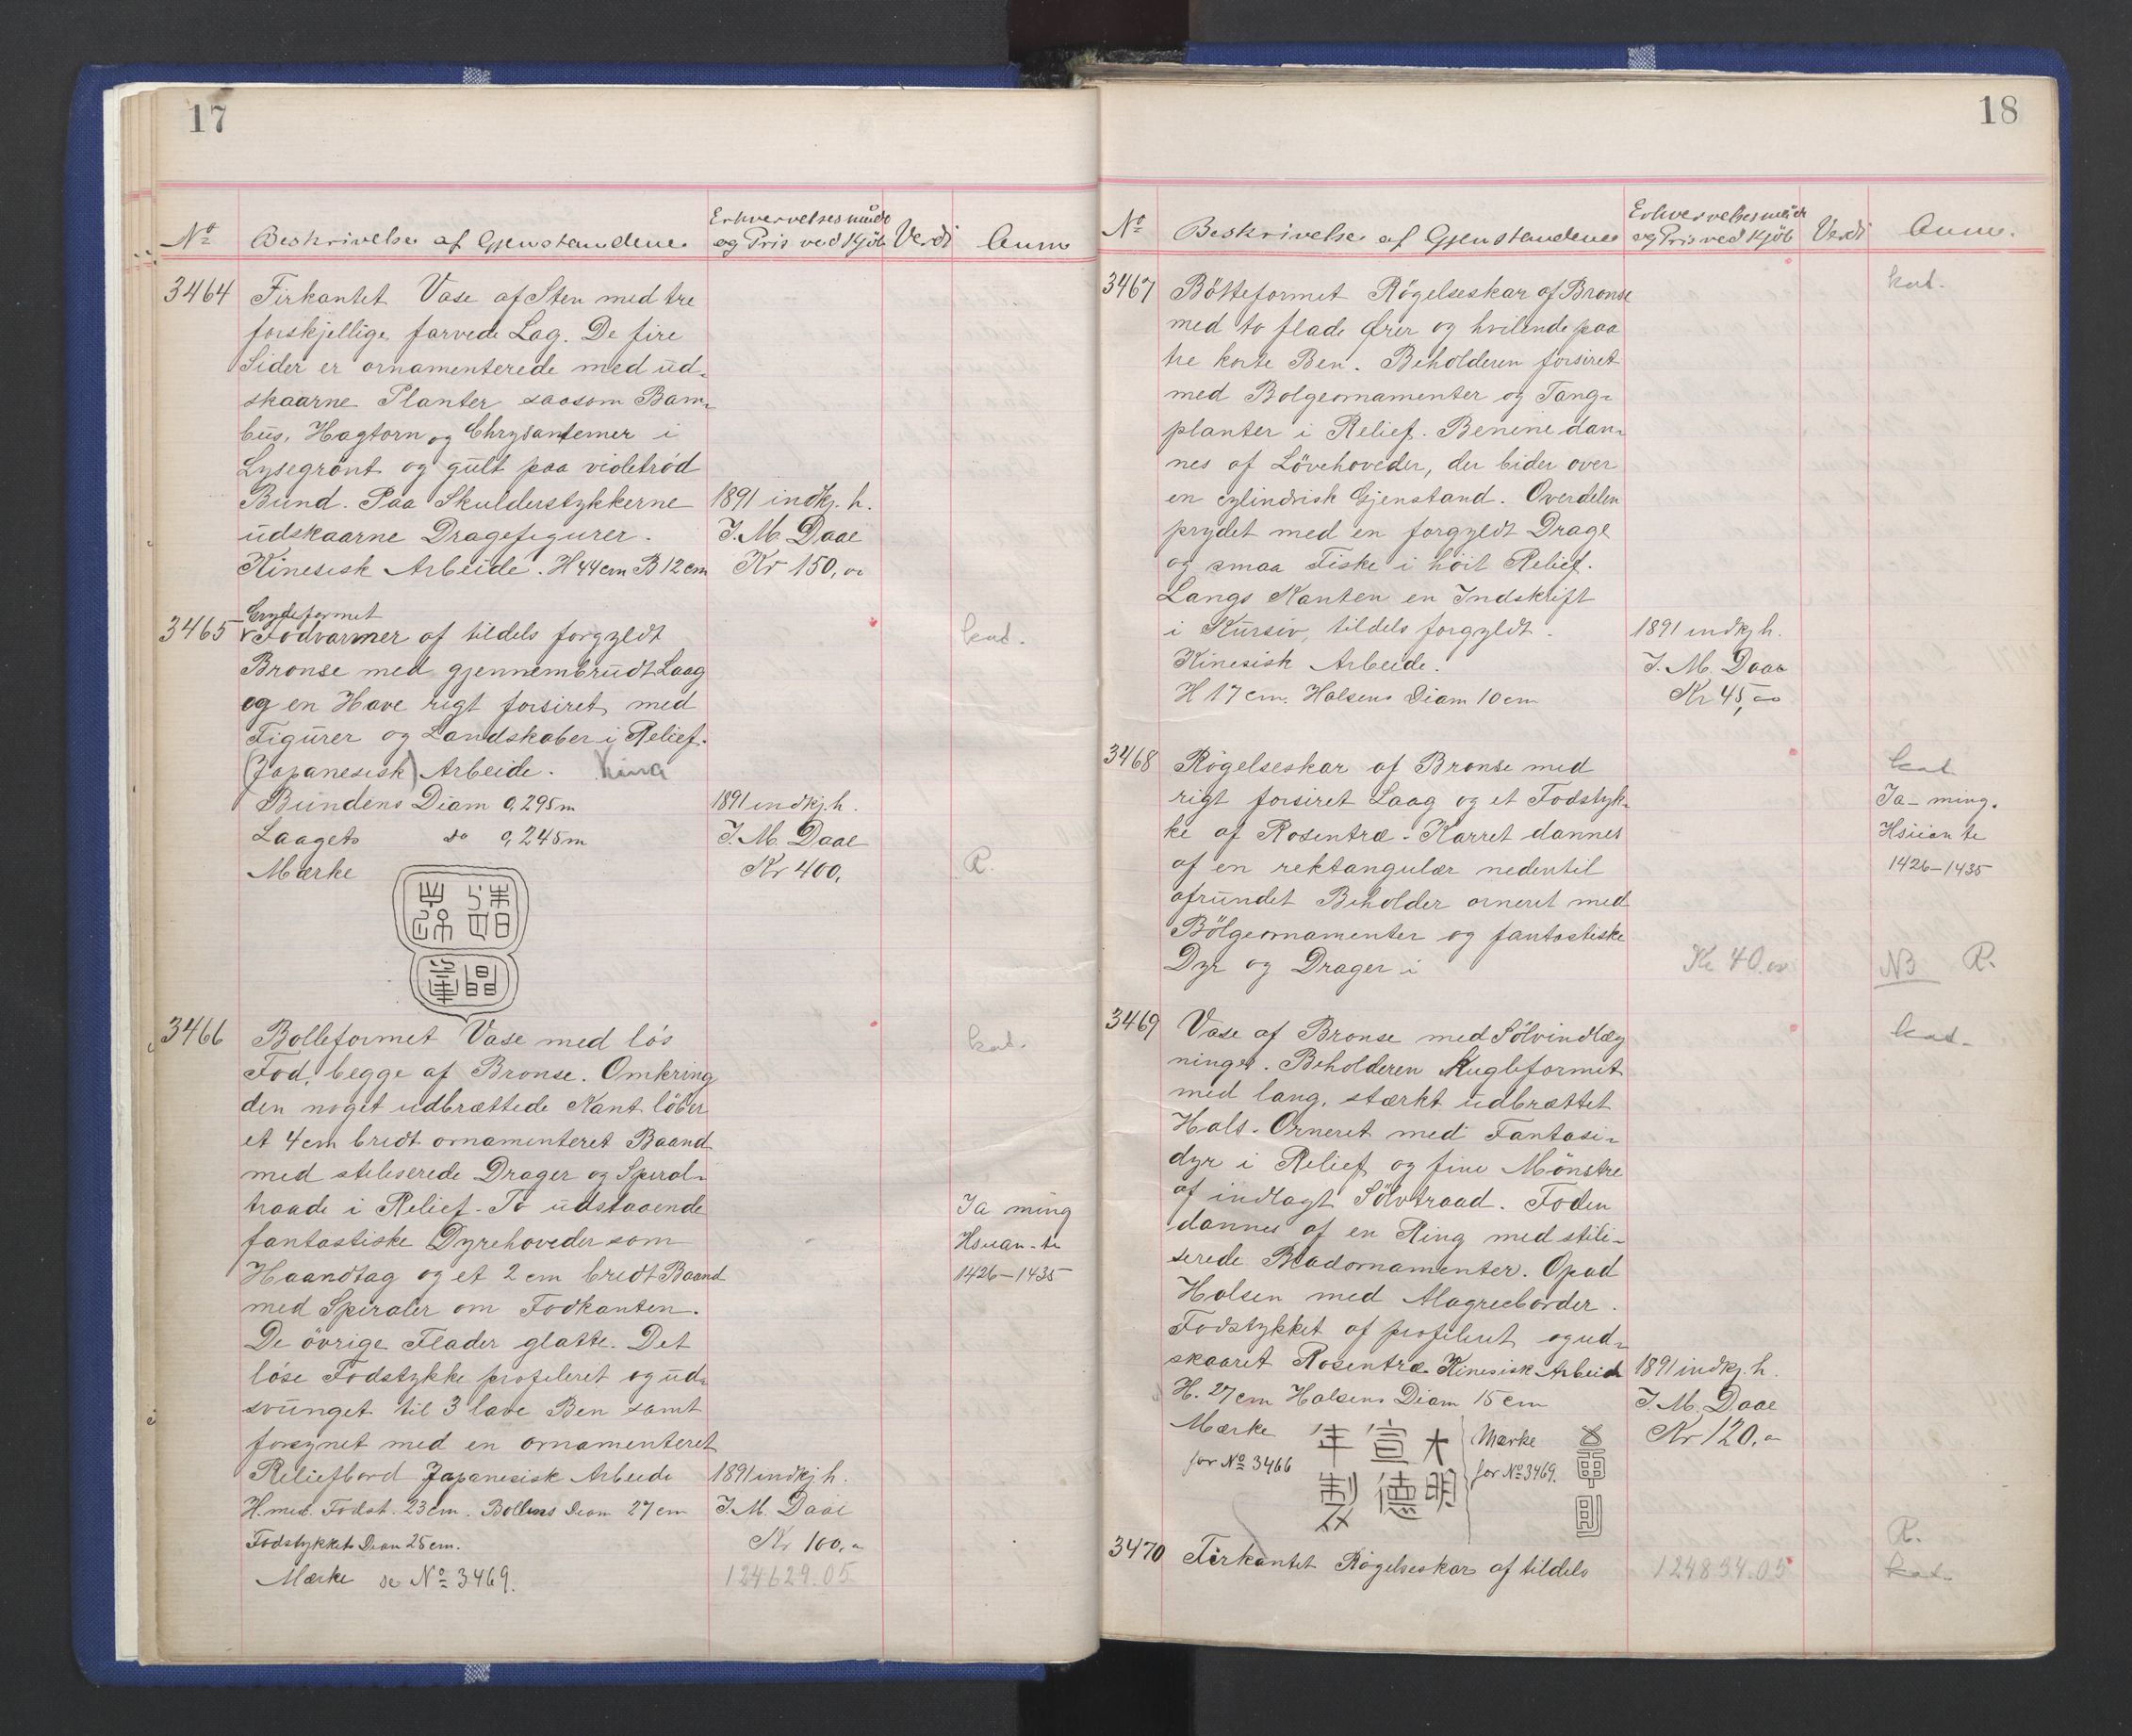 17
No Beskrivelse af Gjenstandene Erhvervelsesmåde og Pris ved Kjöb Verdi Anm
3464 Firkantet Vase af Sten med tre
forskjellige farvede Lag. De fire
Sider er ornamenterede med ud-
skaarne Planter saasom Bam-
bus, Hagtorn og Chrysantemer i
Lysegrönt og gult paa violetröd
Bund. Paa Skulderstykkerne 1891 indkj. h.
udskaarne Dragefigurer. J. M. Daae
Kinesisk Arbeide. H 44 cm B 12 cm Kr 150,00
Grydeformet
3465 Fodvarmer af tildels forgyldt kat.
Bronse med gjennembrudt Laag
og en Have rigt forsiret med
Figurer og Landskaber i Relief.
(Japanesisk) Arbeide. Kina
Bundens Diam 0,295 m 1891 indkj. h.
Laagets do 0,245 m J. M. Daae
Mærke Kr 400, R.
3466 Bolleformet Vase med lös kat.
Fod, begge af Bronse. Omkring
den noget udbrættede Kant löber
et 4 cm bredt ornamenteret Baand
med stiliserede Drager og Spiral-
traade i Relief. To udstaaende Ta ming
fantastiske Dyrehoveder som Hsuan-te
Haandtag og et 2 cm bredt Baand 1426-1435
med Spiraler om Fodkanten.
De övrige Flader glatte. Det
löse Fodstykke profileret og ud-
svunget til 3 lave Ben samt
forsynet med en ornamenteret
Reliefbord Japanesisk Arbeide 1891 indkj. h.
H. med Fodst. 23 cm. Bollens Diam 27 cm J. M. Daae
Fodstykkets Diam 25 cm. Kr 100,
Mærke se No 3469. 124629.05
18
No Beskrivelse af Gjenstandene Erhvervelsesmåde og Pris ved Kjöb Verdi Anm.
3467 Bötteformet Rögelseskar af Bronse kat.
med to flade Ører og hvilende paa
tre korte Ben. Beholderen forsiret
med Bolgeornamenter og Tang-
planter i Relief. Benene dan-
nes af Lövehoveder, der bider over
en cylindrisk Gjenstand. Overdelen
prydet med en forgyldt Drage
og smaa Fiske i höit Relief.
Langs Kanten en Indskrift
i Kursiv, tildels forgyldt. 1891 indkj h.
Kinesisk Arbeide. J. M. Daae
H 17 cm. Halsens Diam 10 cm Kr 45,00
3468 Rögelseskar af Bronse med kat
rigt forsiret Laag og et Fodstyk- Ta-ming.
ke af Rosentræ. Karret dannes Hsuan te
af en rektangulær nedentil 1426-1435
afrundet Beholder orneret med
Bölgeornamenter og fantastiske
Dyr og Drager i Kr 40.00 NB R.
3469 Vase af Bronse med Sölvindlæg kat.
ninger. Beholderen Kugleformet
med lang, stærkt udbrættet
Hals. Orneret med Fantasi-
dyr i Relief og fine Mönstre
af indlagt Sölvtraad. Foden
dannes af en Ring med stili-
serede Bladornamenter. Opad
Halsen med Alagrecborder.
Fodstykket af profileret og ud-
skaaret Rosentræ. Kinesisk Arbeide 1891 indkj. h.
H. 27 cm Halsens Diam 15 cm J. M. Daae
Mærke for No 3466 大明宣德年製 Mærke for No 3469. Kr 120,
R.
3470 Firkantet Rögelseskar af tildels 124834.05 kat.